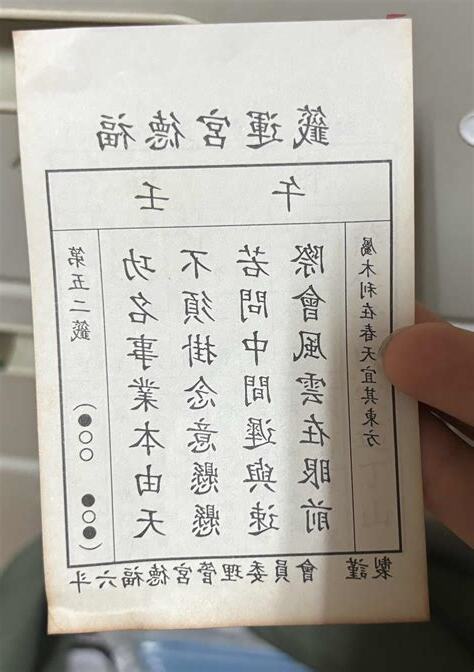 福德宮運籤
壬午
第五二籤 (●○○ ●○●)
功名事業本由天
不須掛念意懸懸
若問中間遲與速
際會風雲在眼前
屬木利在春天宜其東方
斗六福德宮管理委員會 謹製